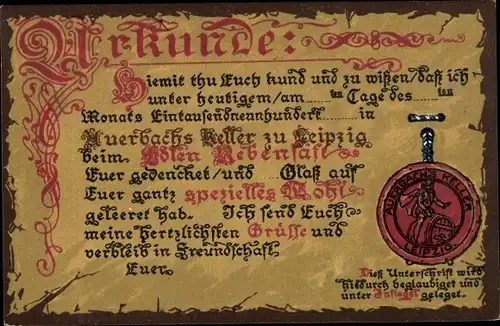 Urkunde:
Hiemit thu Euch kund und zu wißen/daß ich
unter heutigem/am ten Tage des ten
Monats Eintausendneunhundert in
Auerbachs Keller zu Leipzig
beim Edlen Rebensaft
Euer gedencket/und Glaß auf
Euer gantz spezielles Wohl
geleeret hab. Ich send Euch
meine hertzlichsten Grüsse und
verbleib in Freundschaft
Euer
AUERBACHS KELLER
LEIPZIG
Dieß Unterschrift wird
hidurch beglaubiget und
unter Insiegel geleget.